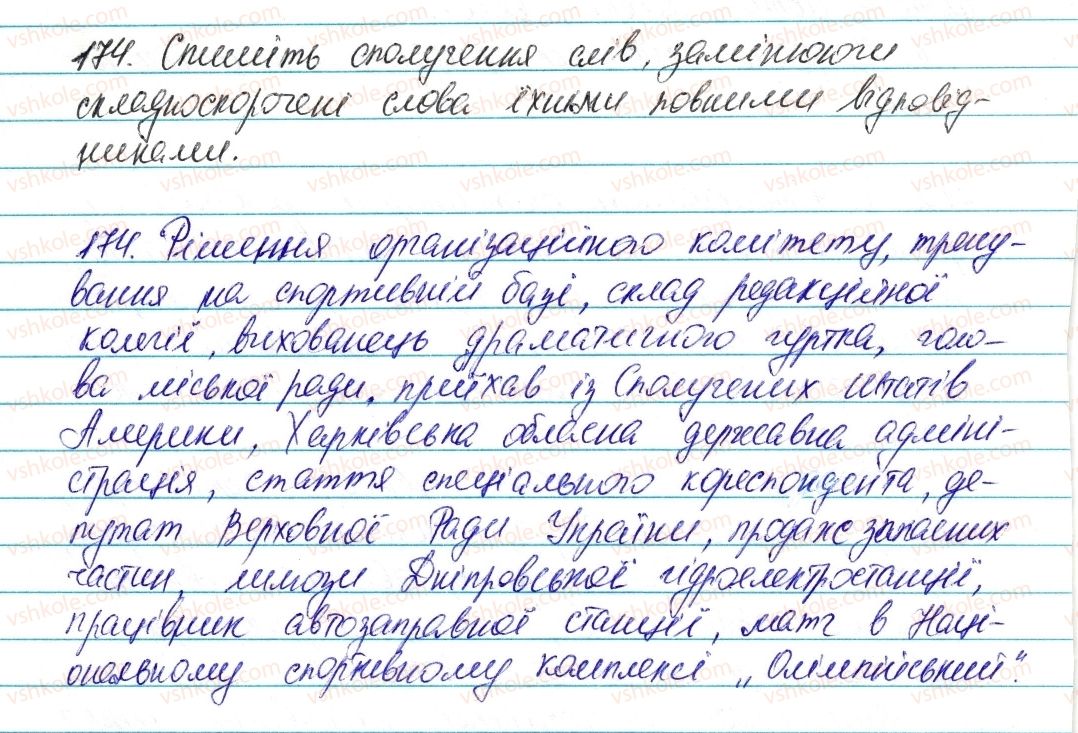 174. Спишіть сполучення слів, замінюючи
складноскорочені слова їхніми повними відповід-
никами.
174. Рішення організаційного комітету, трену-
вання на спортивній базі, склад редакційної
колегії, вихованець драматичного гуртка, голо-
ва міської ради, приїхав із Сполучених Штатів
Америки, Харківська обласна державна адміні-
страція, стаття спеціального кореспондента, де-
путат Верховної Ради України, продаж запасних
частин, шлюзи Дніпровської гідроелектростанції,
працівник автозаправної станції, матч в Наці-
ональному спортивному комплексі „Олімпійський".